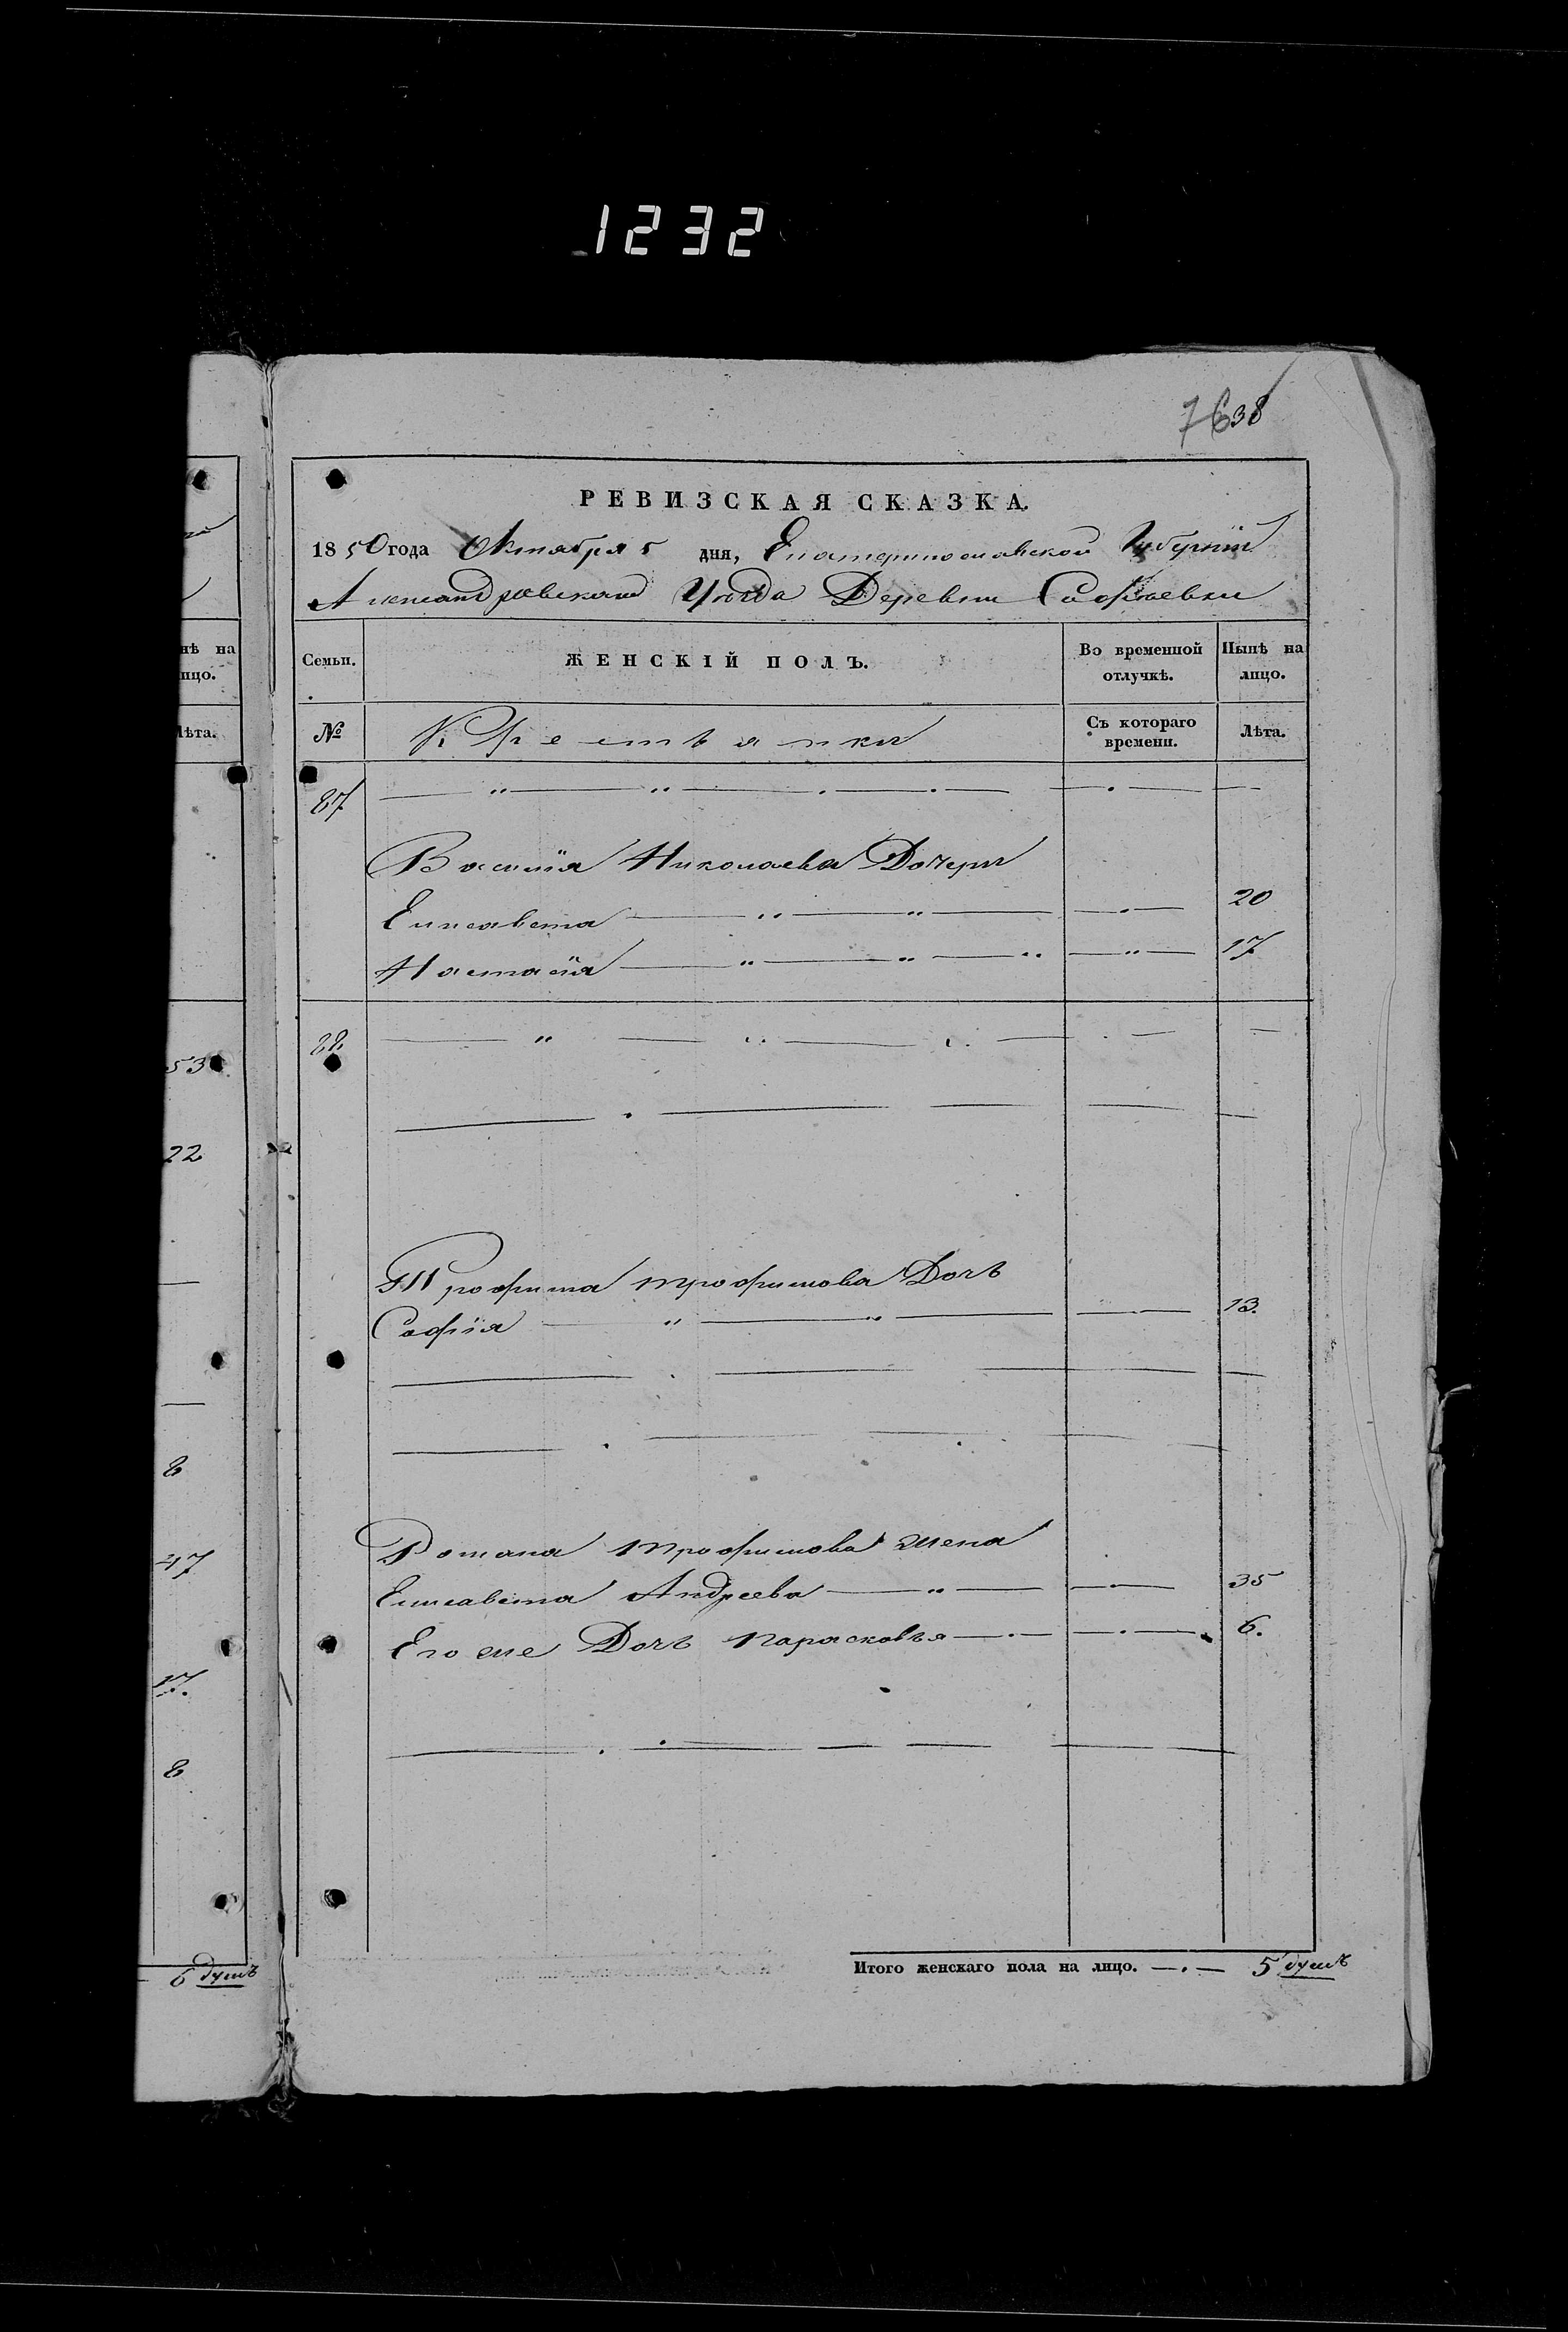 1232
7638
РЕВИЗСКАЯ СКАЗКА.
1850 года Октября 5 дня, Екатеринославской Губерніи
Александровскаго Уезда Деревни Софіевки
Семьи.
ЖЕНСКІЙ ПОЛЪ.
Во временной отлучкѣ.
Нынѣ на лицо.
№
Крестьянки
Съ котораго времени.
Лѣта.
87
Василія Николаева Дочери
Елисавета 20
Настасія 17
88
Трофима Трофимова Дочь
Софія 13.
Романа Трофимова жена
Елисавета Андреева 35
Его же Дочь Парасковья 6.
Итого женскаго пола на лицо. 5 душъ
нѣ на
ицо.
Лѣта.
53
22
8
47
17.
8
6 душъ